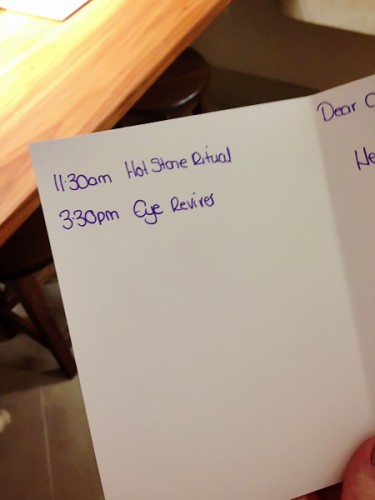 11:30am Hot Stone Ritual
3:30pm Eye Reviver
Dear